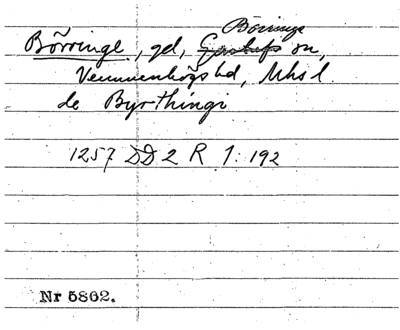 Börringe
Börringe, gd, Gustafs sn,
Vemmenhögs hd, Mhs l.
de Byrthingi
1257 DD 2 R 1: 192
Nr 5862.